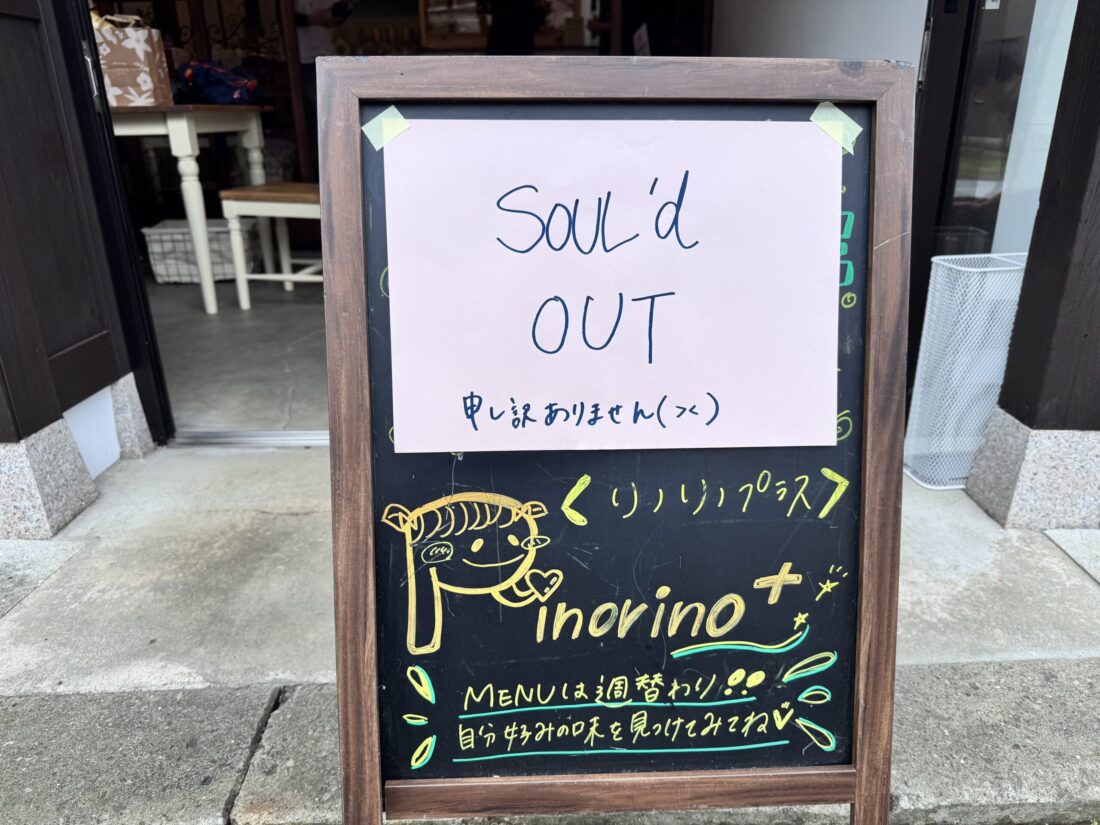 SOUL'd
OUT
申し訳ありません(><)
<リノリノプラス>
Rinorino+
MENUは週替わり!!
自分好みの味を見つけてみてね♡